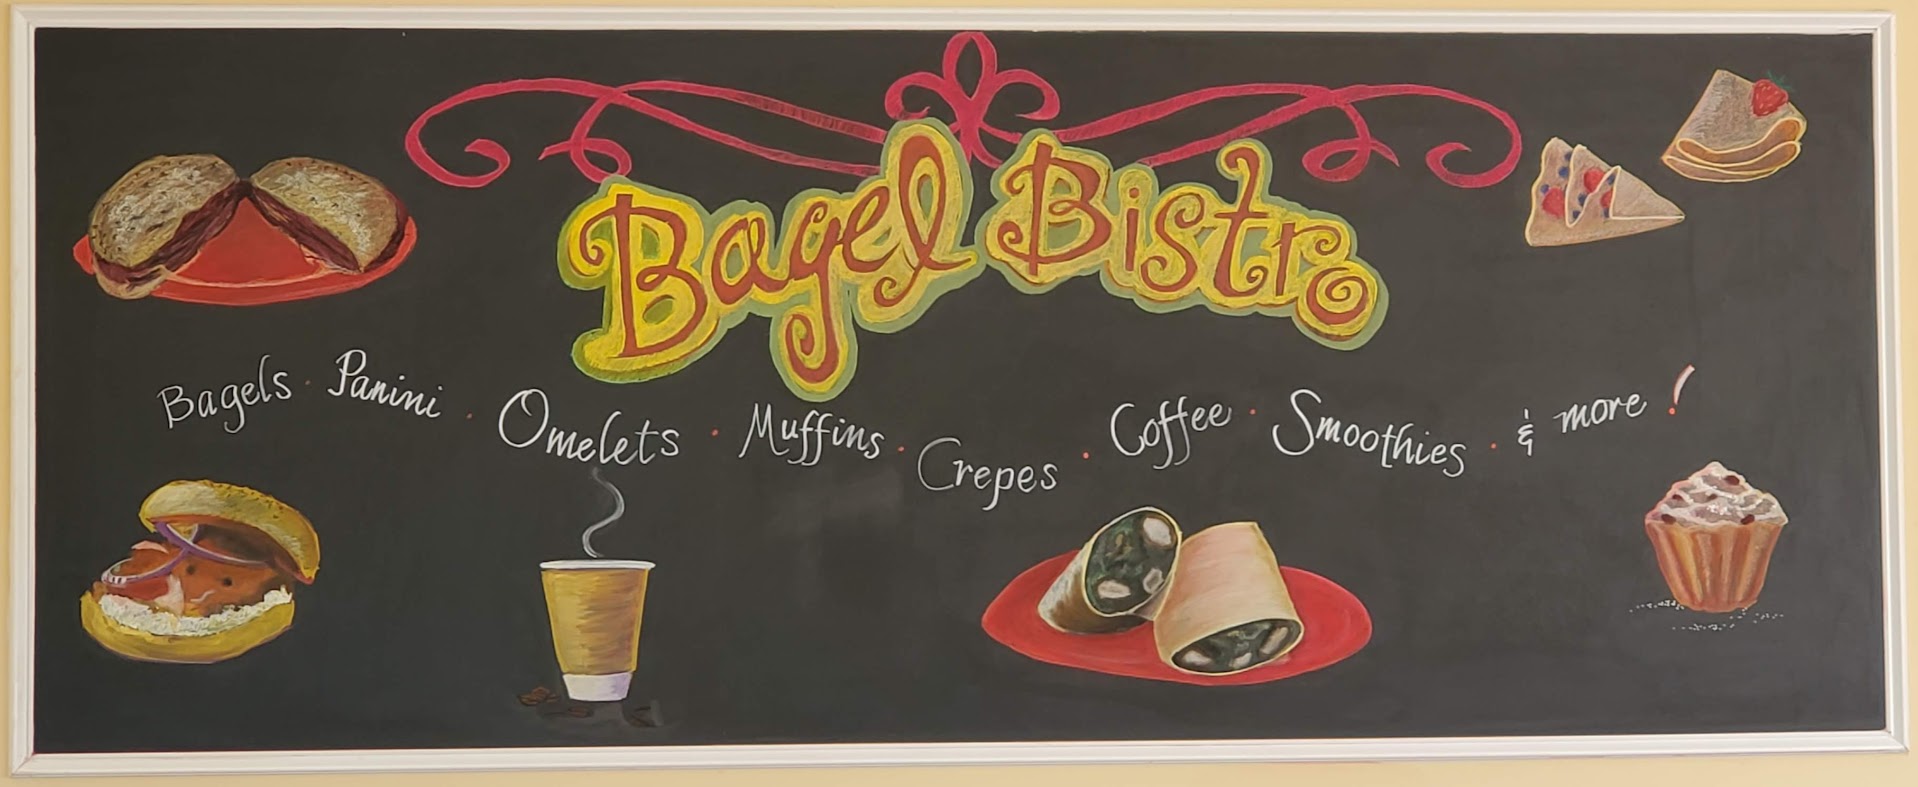 Bagel Bistro
Bagels · Panini · Omelets · Muffins · Crepes · Coffee · Smoothies · & more!